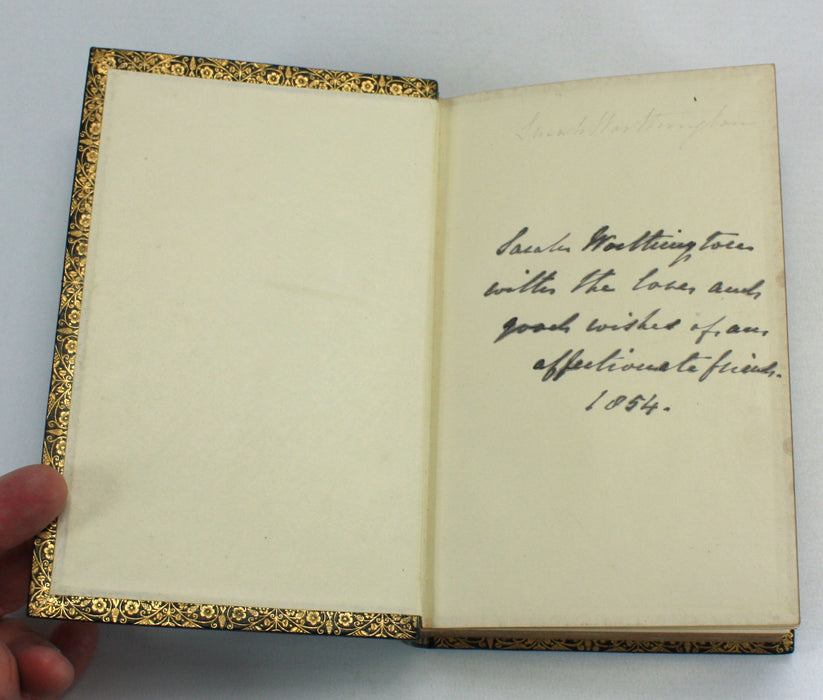 Sarah Worthington
Sarah Worthington
with the love and
good wishes of an
affectionate friend.
1854.